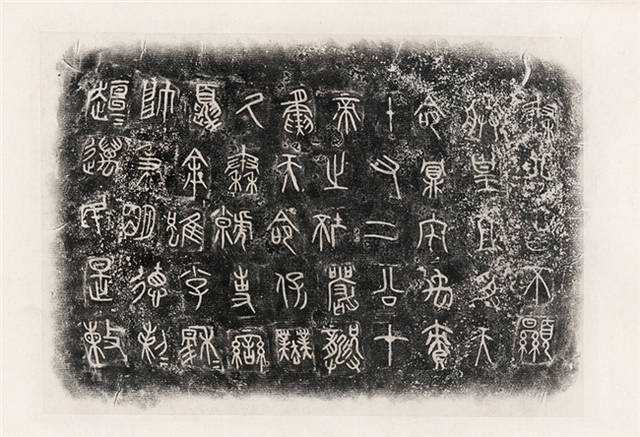 秦公曰不顯
朕皇且受天
命鼏宅禹責
十又二公才
帝之坏嚴龏
夤天命保業
厥秦虩事蠻
夏余雖小子穆=
帥秉明德剌=
趄=邁民是敕